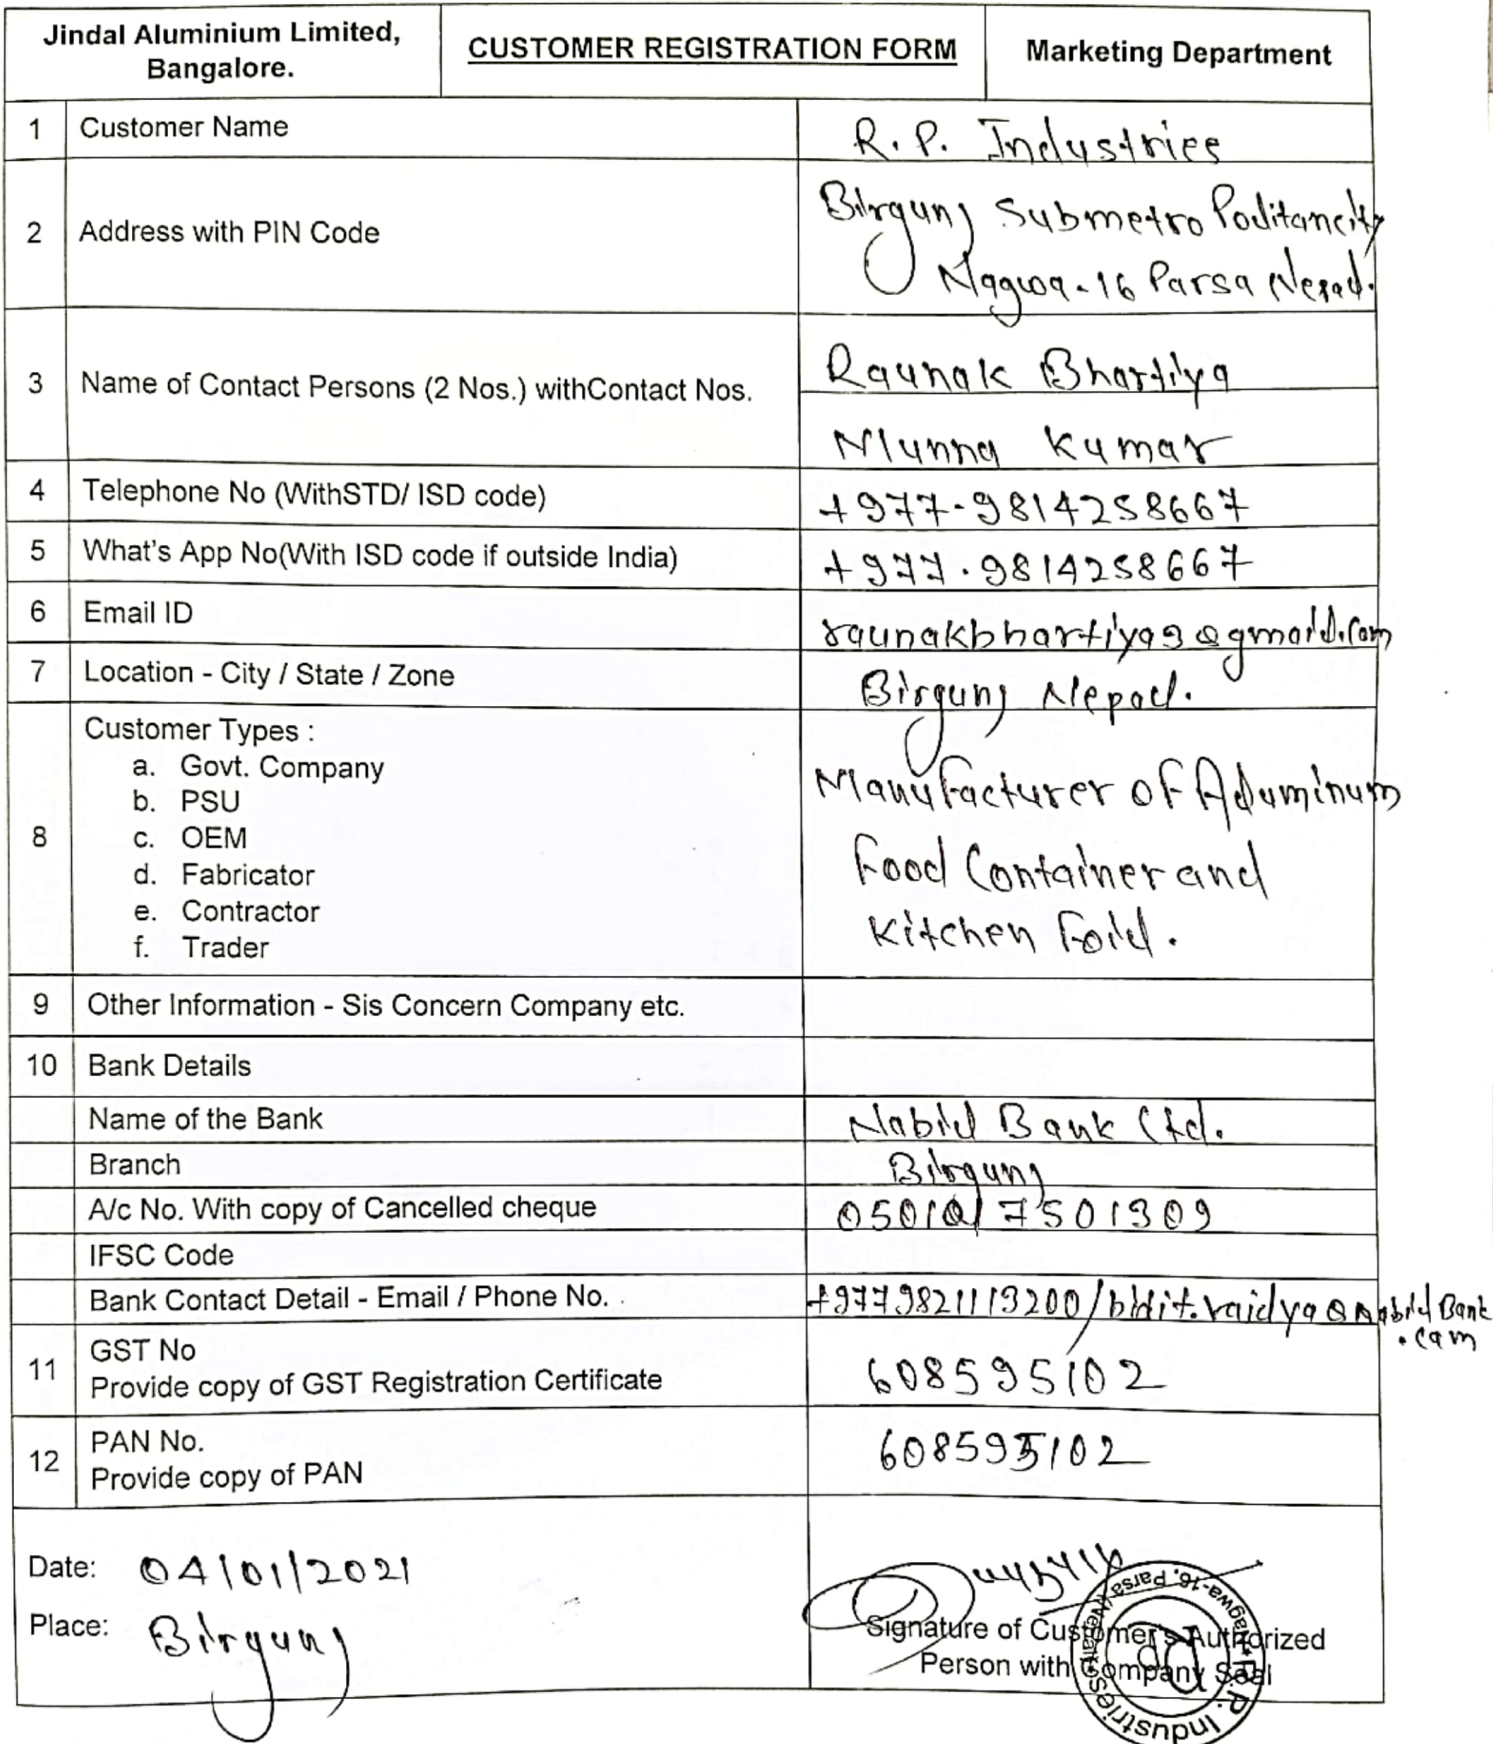 Jindal Aluminium Limited,
Bangalore.
CUSTOMER REGISTRATION FORM
Marketing Department
1 Customer Name R. P. Industries
2 Address with PIN Code Birgunj Submetropolitancity
Nagwa-16 Parsa Nepal.
3 Name of Contact Persons (2 Nos.) withContact Nos. Raunak Bhartiya
Munna Kumar
4 Telephone No (WithSTD/ ISD code) +977-9814258667
5 What's App No(With ISD code if outside India) +977-9814258667
6 Email ID raunakbhartiya9@gmail.com
7 Location - City / State / Zone Birgunj Nepal.
8 Customer Types :
a. Govt. Company
b. PSU
c. OEM
d. Fabricator
e. Contractor
f. Trader
Manufacturer of Aluminum
Food Container and
Kitchen Foil.
9 Other Information - Sis Concern Company etc.
10 Bank Details
Name of the Bank Nabil Bank Ltd.
Branch Birgunj
A/c No. With copy of Cancelled cheque 0501017501309
IFSC Code
Bank Contact Detail - Email / Phone No. +9779821113200/bidit.vaidya@nabilBank
.com
11 GST No 608595102
Provide copy of GST Registration Certificate
12 PAN No. 608595102
Provide copy of PAN
Date: 04/01/2021
Place: Birgunj
Signature of Customer's Authorized
Person with Company Seal
R.P. Industries
Nagwa-16, Parsa (Nepal)